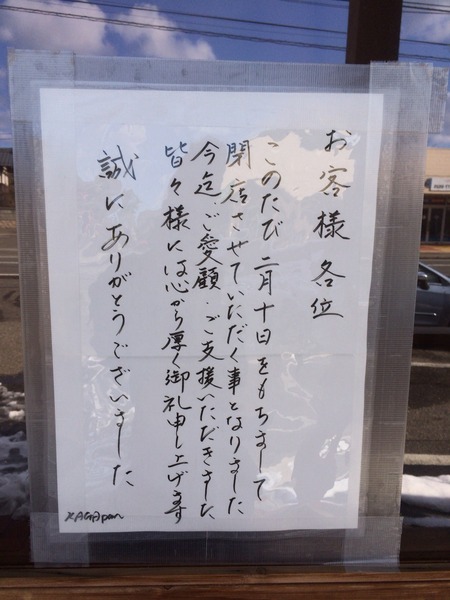 お客様各位
このたび二月十日をもちまして
閉店させていただく事となりました
今迄ご愛顧・ご支援いただきました
皆々様には心から厚く御礼申し上げます
誠にありがとうございました